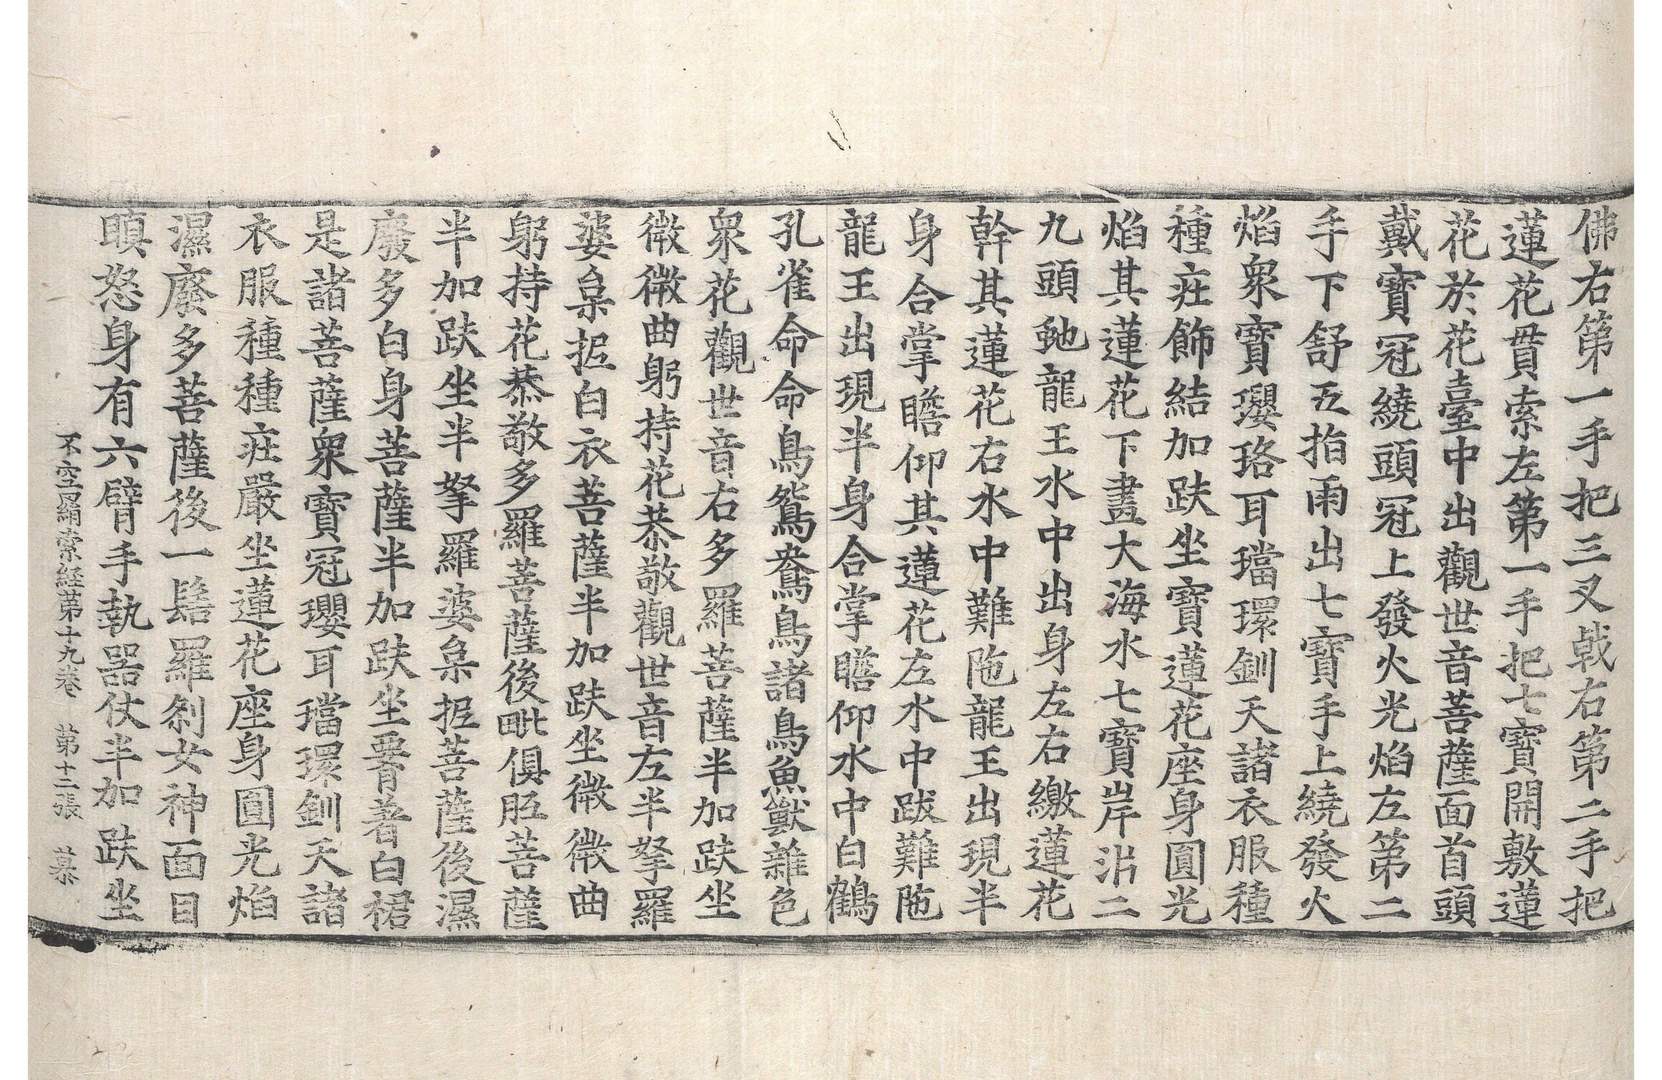 佛右第一手把三叉戟右第二手把
蓮花罥索左第一手把七寶開敷蓮
花於花臺中出觀世音菩薩面首頭
戴寶冠繞頭冠上發火光焰左第二
手下舒五指雨出七寶手上繞發火
焰衆寶瓔珞耳璫環釧天諸衣服種
種疘飾結加趺坐寶蓮花座身圓光
焰其蓮花下畫大海水七寶岸沜二
九頭虵龍王水中出身左右繳蓮花
幹其蓮花右水中難陁龍王出現半
身合掌瞻仰其蓮花左水中跋難陁
龍王出現半身合掌瞻仰水中白鶴
孔雀命命鳥鴛鴦鳥諸鳥魚獸雜色
衆花觀世音右多羅菩薩半加趺坐
微微曲躬持花恭敬觀世音左半拏羅
婆枲抳白衣菩薩半加趺坐微微曲
躬持花恭敬多羅菩薩後毗俱胝菩薩
半加趺坐半拏羅婆枲抳菩薩後濕
廢多白身菩薩半加趺坐要著白裙
是諸菩薩衆寶冠瓔耳璫環釧天諸
衣服種種疘嚴坐蓮花座身圓光焰
濕廢多菩薩後一髻羅剎女神面目
瞋怒身有六臂手執器仗半加趺坐
不空羂索経第十九卷 第十二張 慕